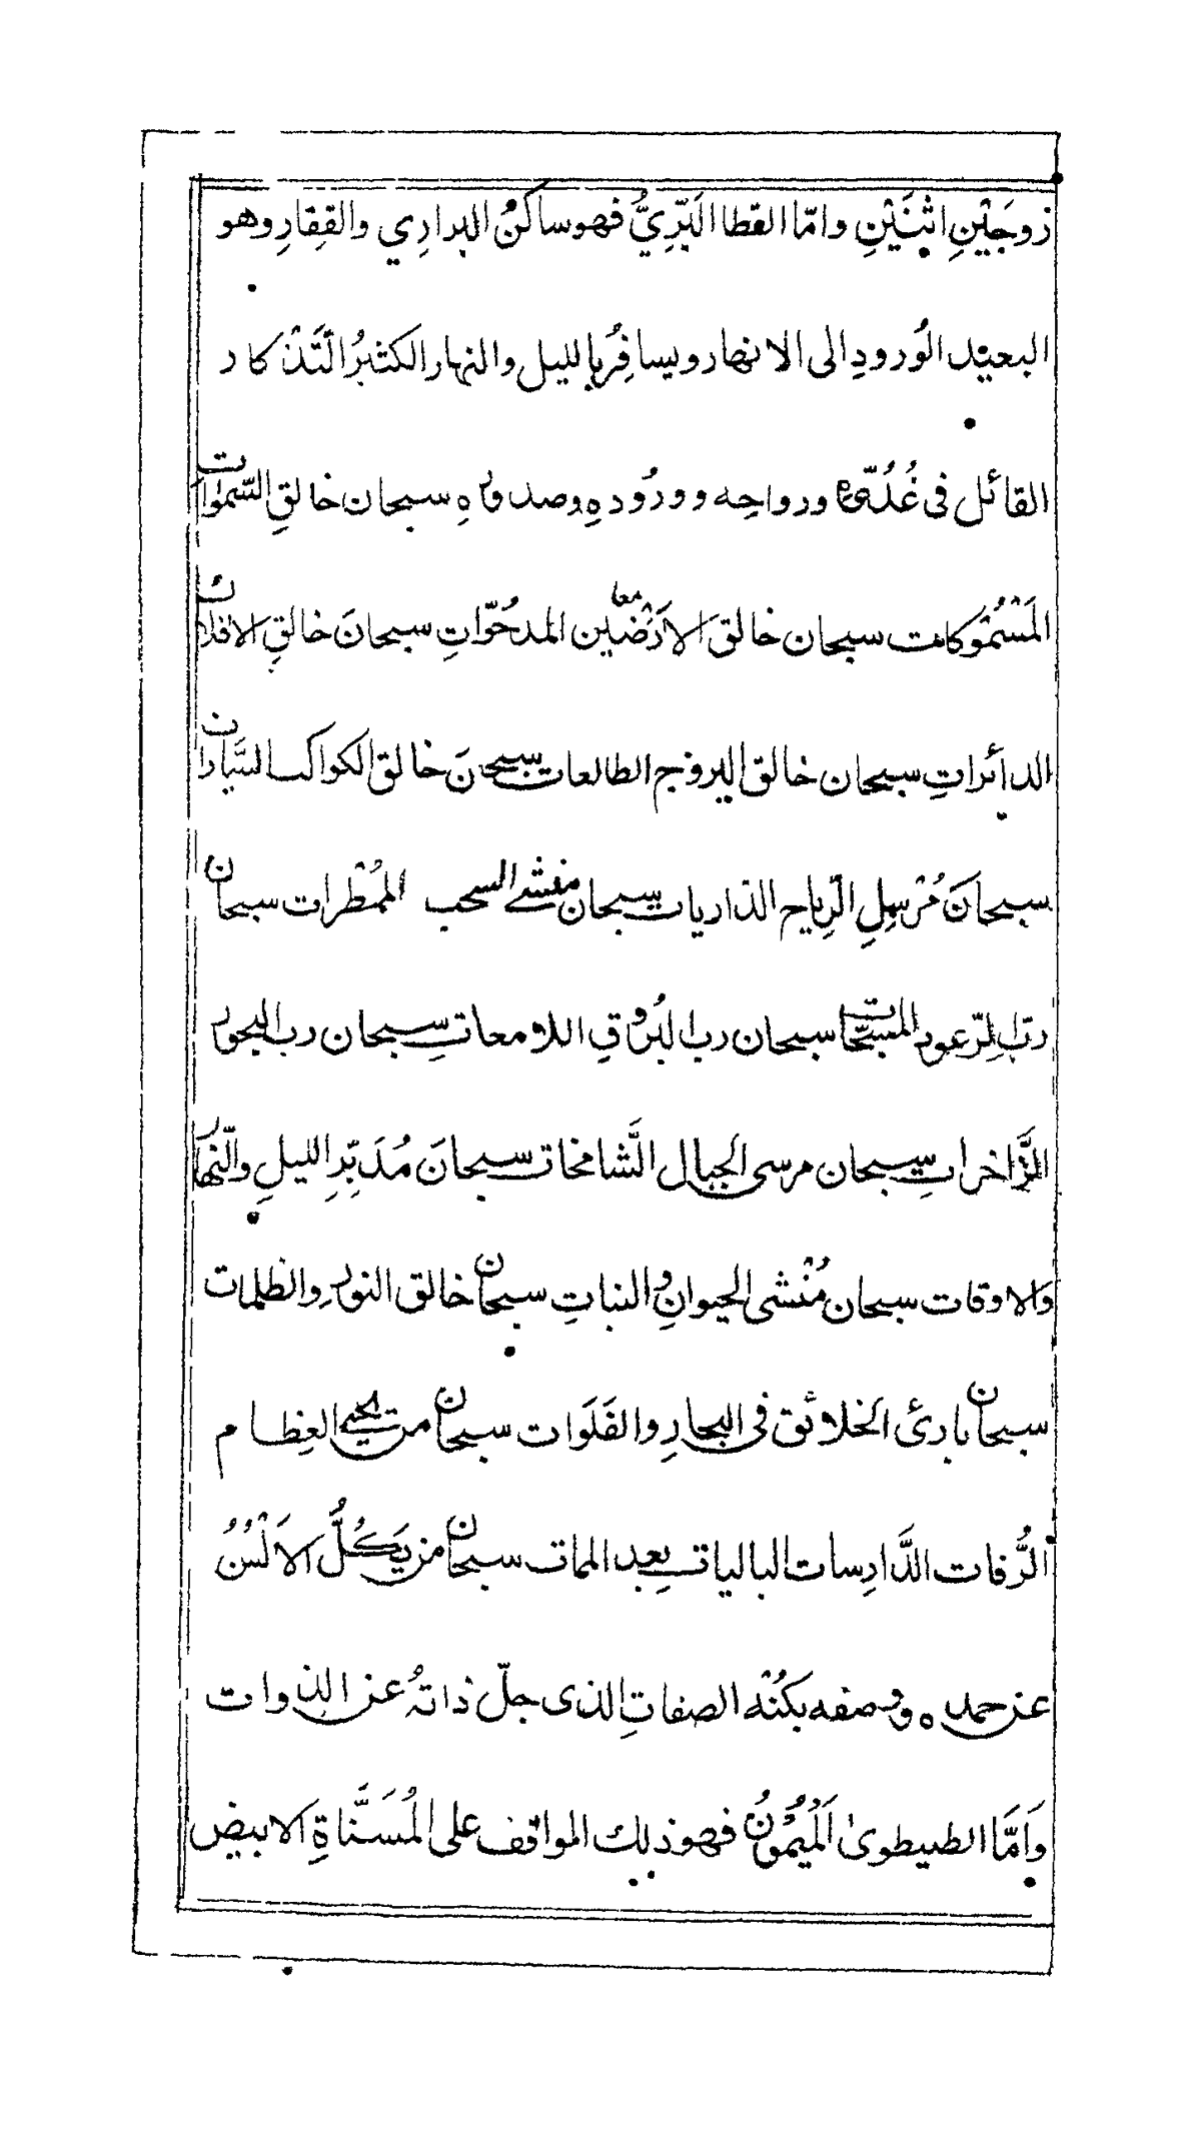 زوجَيْنِ اثْنَيْنِ وامّا القطا البَرِّيُّ فهو ساكنُ البراري والقِفارِ وهو
البعيْد الوُرودِ الى الانهار ويسافِرُ بالليل والنهار الكثيْرُ التَّذْكار
القائل فى غُدُوّه ورواحِه وورُودهِ وصدورهِ سبحان خالقِ السّمٰوات
المَسْمُوكات سبحان خالق الاَرَضين المدحُوّاتِ سبحانَ خالقِ الافلاك
الدائراتِ سبحان خالق البروْج الطالعات سبحانَ خالق الكواكب السَّيارات
سبحانَ مُرْسِلِ الرِّياحِ الذاريات سبحان منشئ السحب المُمْطرات سبحان
ربّ الرّعود المسبّحات سبحان رب البُرُوقِ اللامعاتِ سبحان رب البحور
الزَّاخراتِ سبحان مرسى الجبال الشَّامخات سبحانَ مُدَبِّرِ الليلِ والنّهار
والاوقات سبحان مُنْشى الحيوانِ والنباتِ سبحان خالق النورِ والظلمات
سبحان بارئ الخلائق فى البحارِ والفَلَوات سبحان من يحيي العِظام
الرُّفات الدَّارِسات الباليات بعِد الممات سبحان من يَكِلُّ الاَلْسُنُ
عن حمده ووصفه بكُنْه الصفاتِ الذى جلّ ذاتهُ عن الذوات
وَاَمَّا الطيطوىٰ اَلْمَيْمُوْنُ فهو ذلك الواقف على المُسَنَّاةِ الابيض